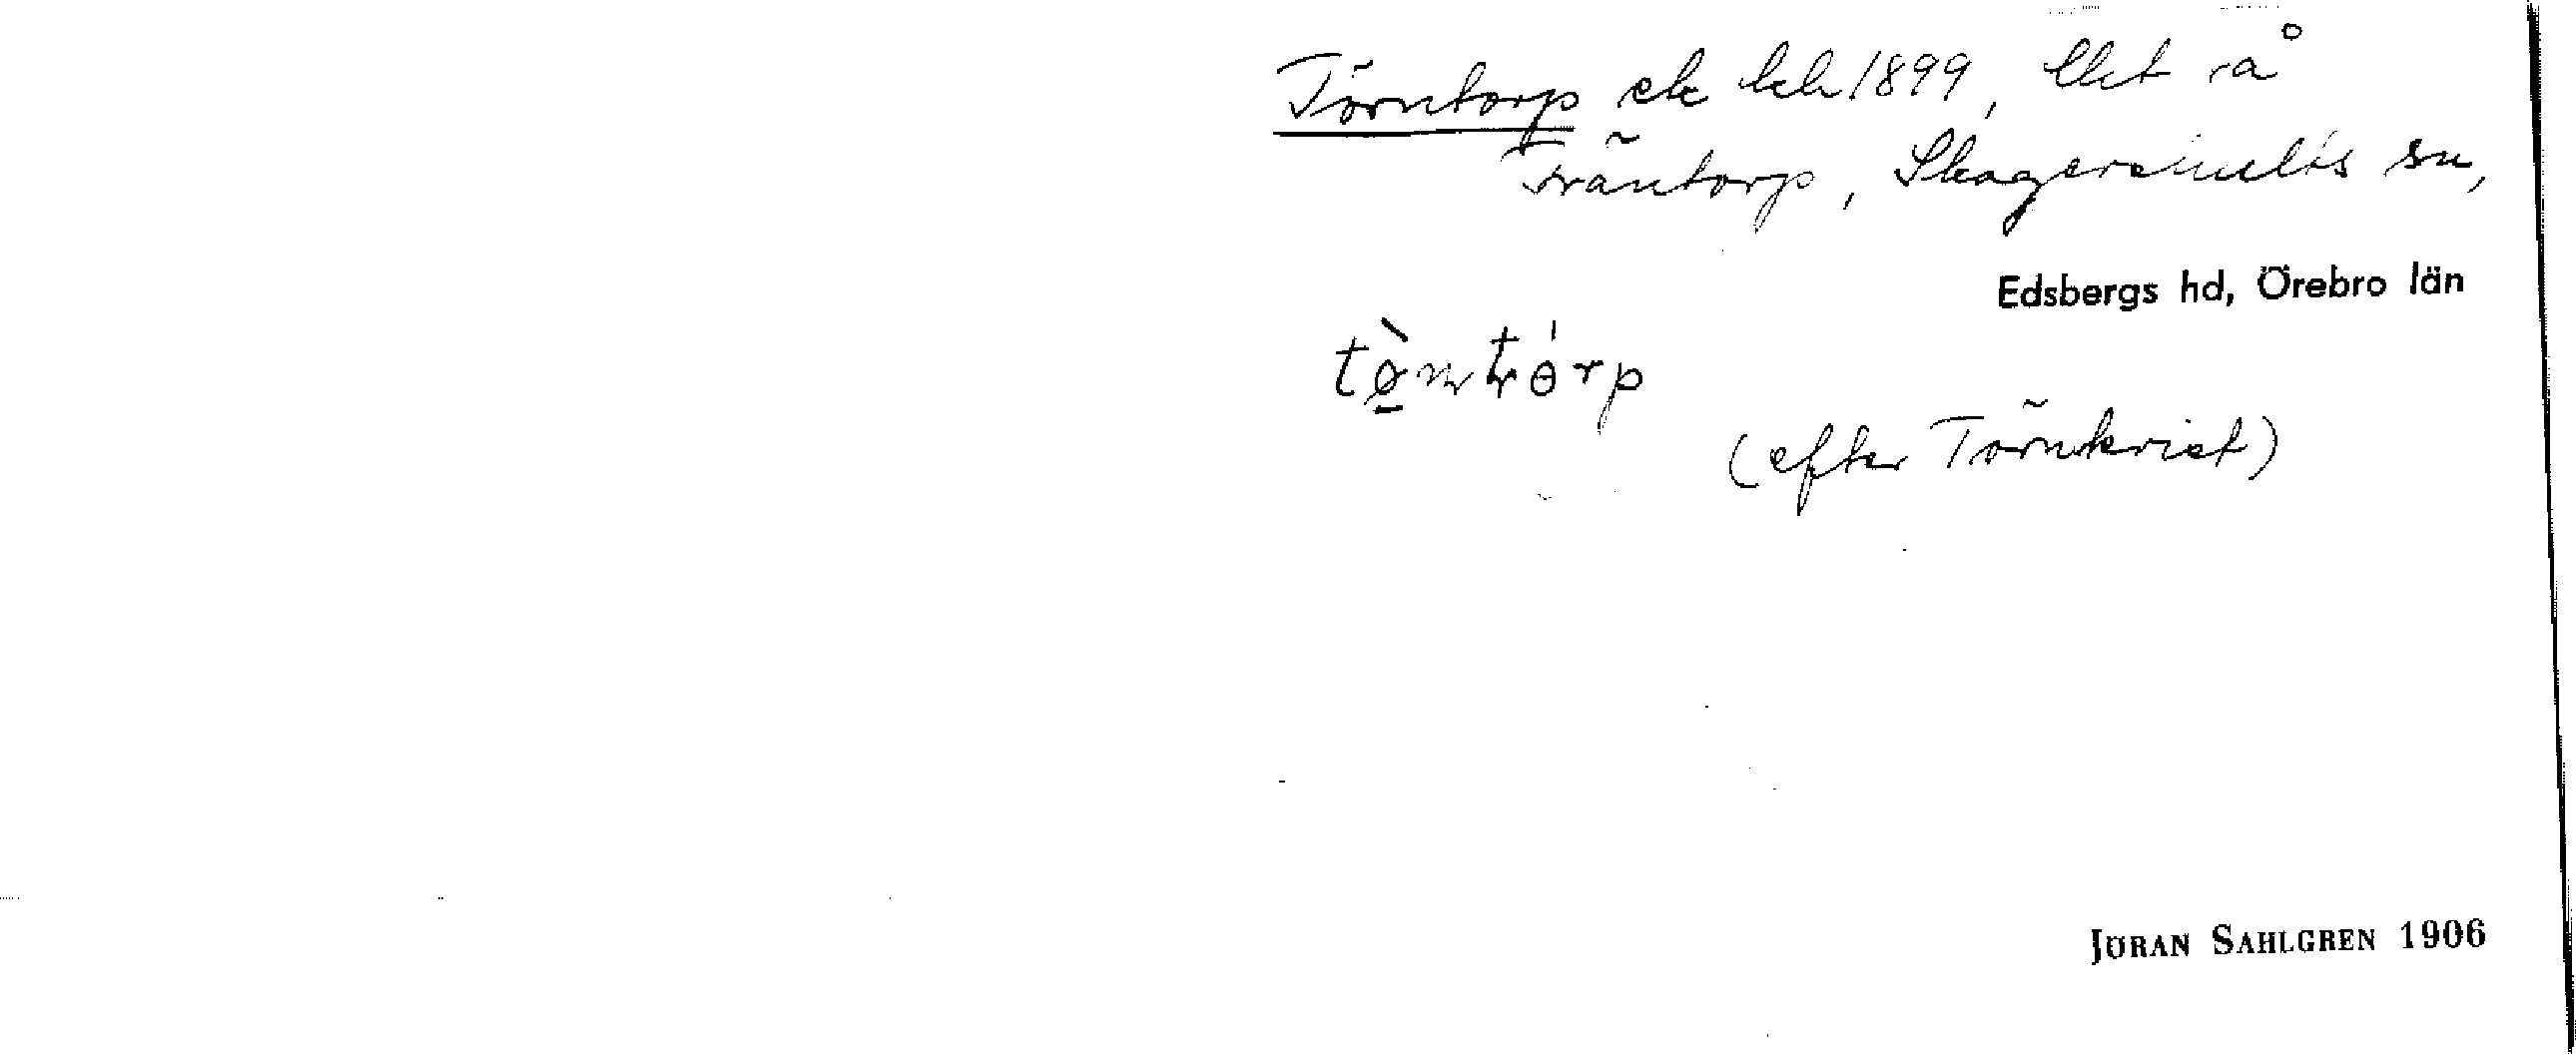 Törntorp ek lch 1899, Ukt på
Träntorp, Skagershults sn,
Edsbergs hd, Örebro län
tø̀ṇtɵ́rp
(efter Törnkvist)
JÖRAN SAHLGREN 1906